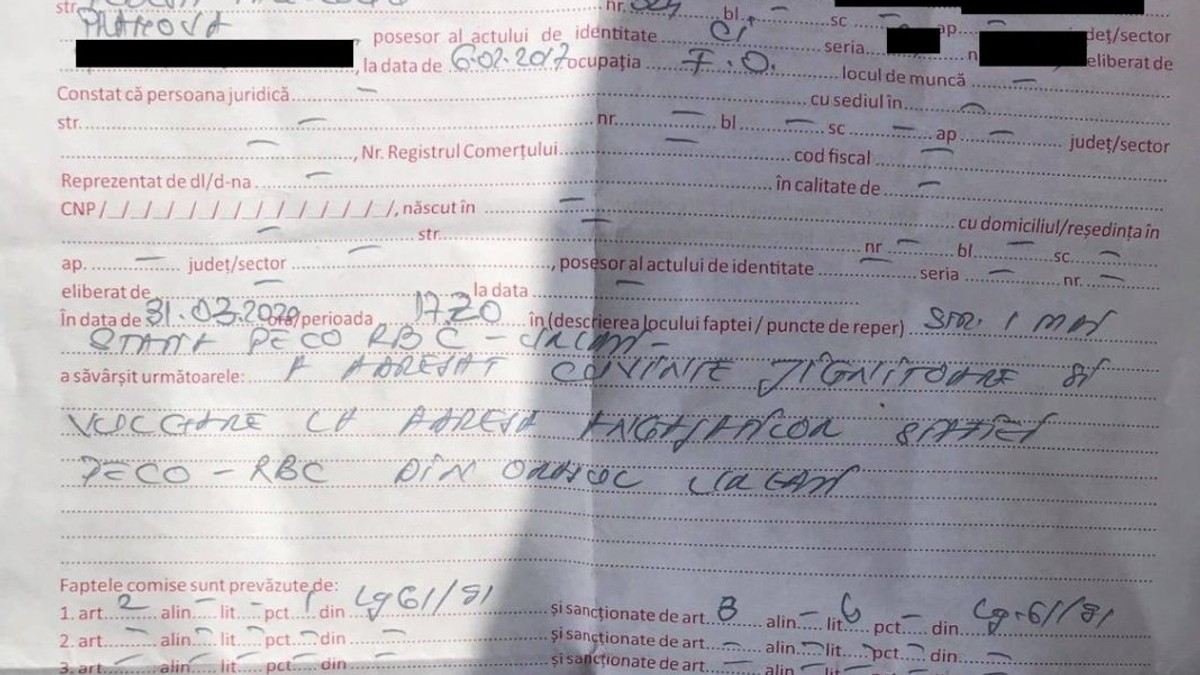 str. nr. 324 bl. — sc — ap. —
PRAHOVA județ/sector
posesor al actului de identitate CI seria n eliberat de
, la data de 6.02.2017 ocupația F.O. locul de muncă —
Constat că persoana juridică — cu sediul în —
str. — nr. — bl — sc — ap — județ/sector
—, Nr. Registrul Comerțului — cod fiscal —
Reprezentat de dl/d-na — în calitate de —
CNP /_/_/_/_/_/_/_/_/_/_/_/_/_/, născut în — cu domiciliul/reședința în
— str. — nr — bl. — sc. —
ap. — județ/sector —, posesor al actului de identitate — seria — nr. —
eliberat de — la data —
În data de 31.03.2020 ora/perioada 1720 în (descrierea locului faptei / puncte de reper) STR. 1 MAI
STAȚIA PECO RBC – URLAȚI –
a săvârșit următoarele: A ADRESAT CUVINTE JIGNITOARE ȘI
VULGARE LA ADRESA ANGAJAȚILOR STAȚIEI
PECO – RBC DIN ORAȘUL URLAȚI
Faptele comise sunt prevăzute de:
1. art. 2 alin. — lit — pct. 1 din Lg 61/91 și sancționate de art. 3 alin. — lit. b pct. — din Lg. 61/91
2. art. — alin. — lit. — pct. — din — și sancționate de art. — alin. — lit. — pct. — din —
3. art. — alin. — lit. — pct. — din — și sancționate de art. — alin — lit. —